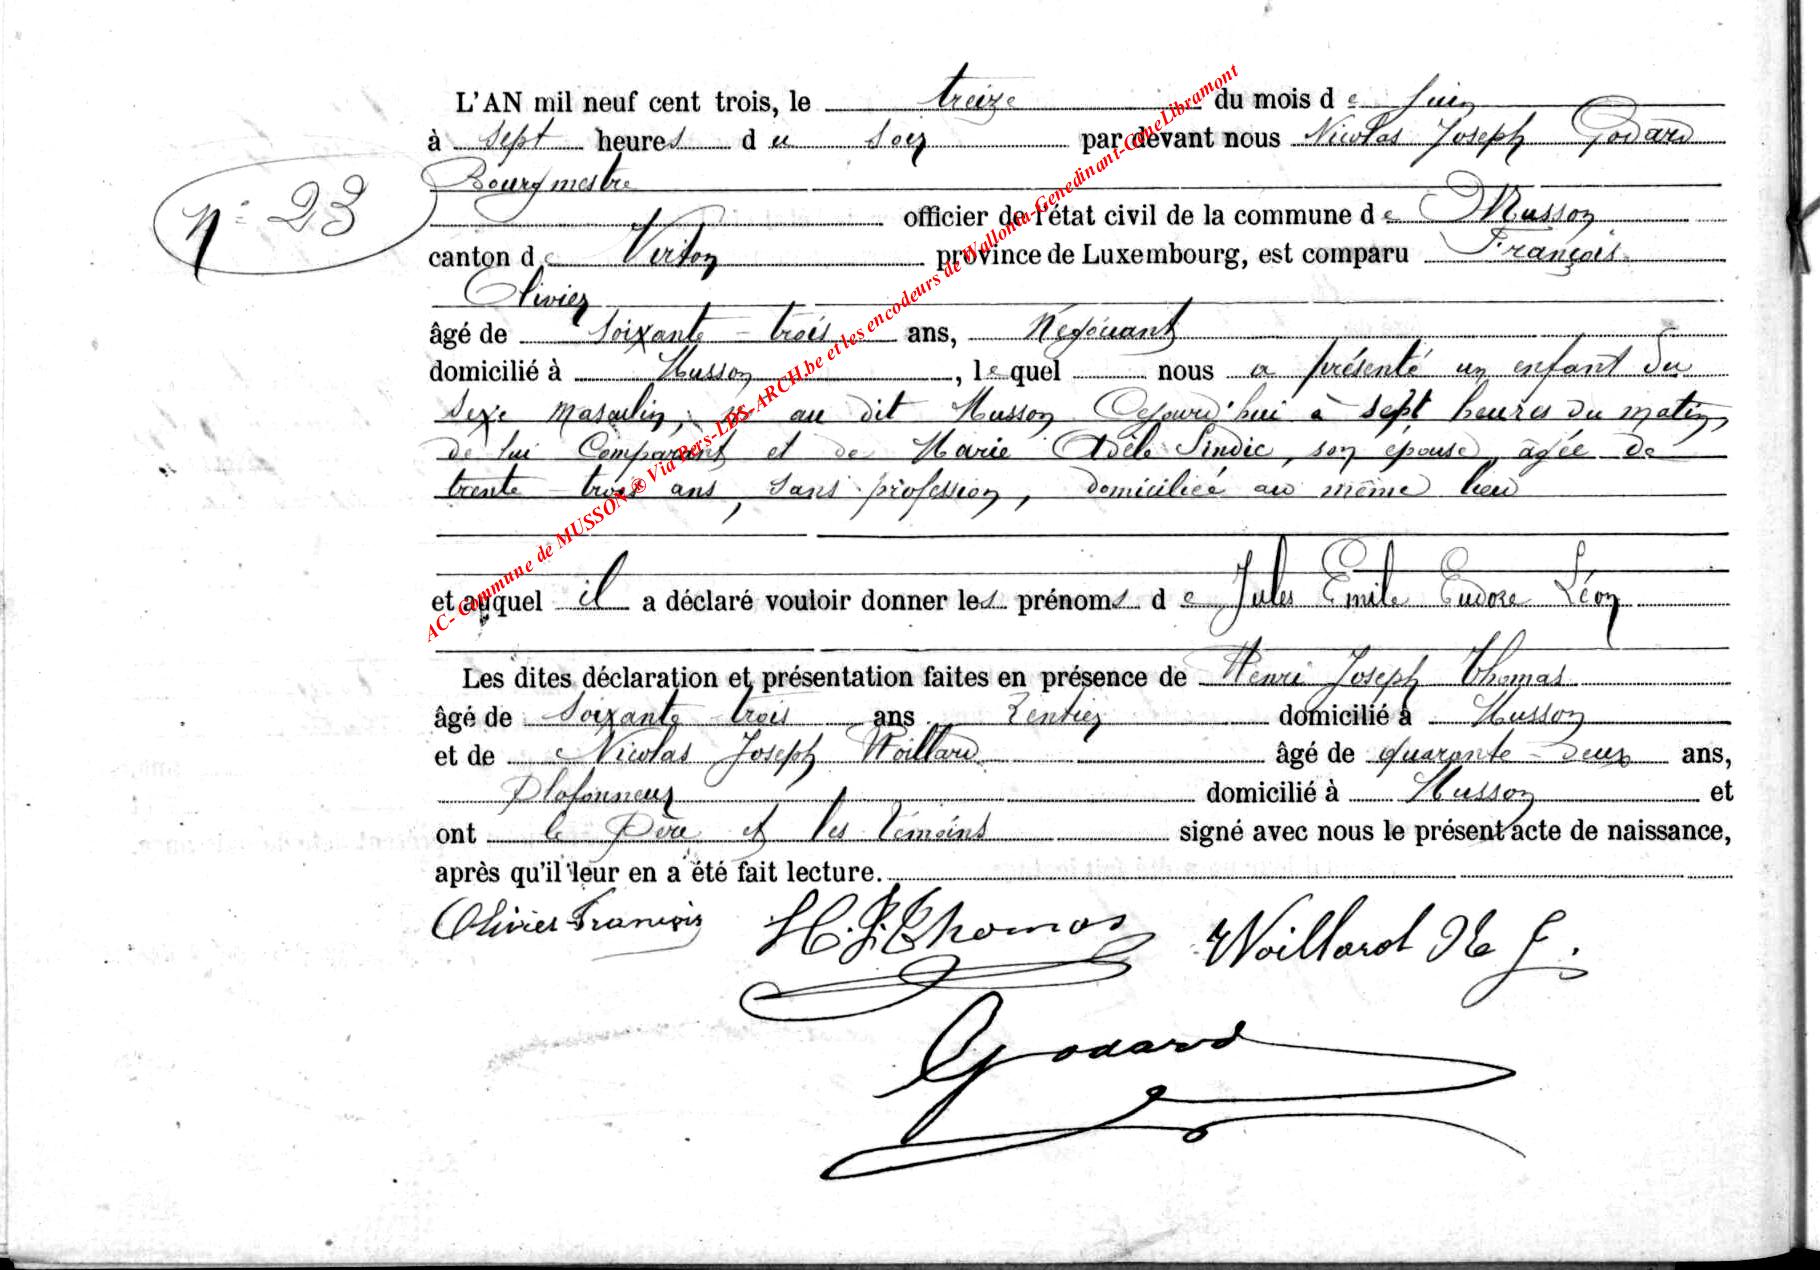 L'AN mil neuf cent trois, le treize du mois de Juin
à sept heures du soir par devant nous Nicolas Joseph Godard
Bourgmestre
N° 23
officier de l'état civil de la commune de Musson
canton de Virton province de Luxembourg, est comparu François
Olivier
âgé de soixante-trois ans, Négociant
domicilié à Musson, lequel nous a présenté un enfant du
sexe masculin, né au dit Musson Cejourd'hui à sept heures du matin,
de lui Comparant et de Marie Adèle Sindic, son épouse, âgée de
trente-trois ans, sans profession, domiciliée au même lieu
et auquel il a déclaré vouloir donner les prénoms de Jules Emile Eudore Léon
Les dites déclaration et présentation faites en présence de Henri Joseph Thomas
âgé de soixante trois ans Rentier domicilié à Musson
et de Nicolas Joseph Woillard âgé de quarante-deux ans,
Plafonneur domicilié à Musson et
ont le Père et les témoins signé avec nous le présent acte de naissance,
après qu'il leur en a été fait lecture.
Olivier François H. J. Thomas Woillard N J.
Godard
AC- Commune de MUSSON ® Via Bers-LDS-ARCH.be et les encodeurs de Wallonia-Genedinant-GeneLibramont